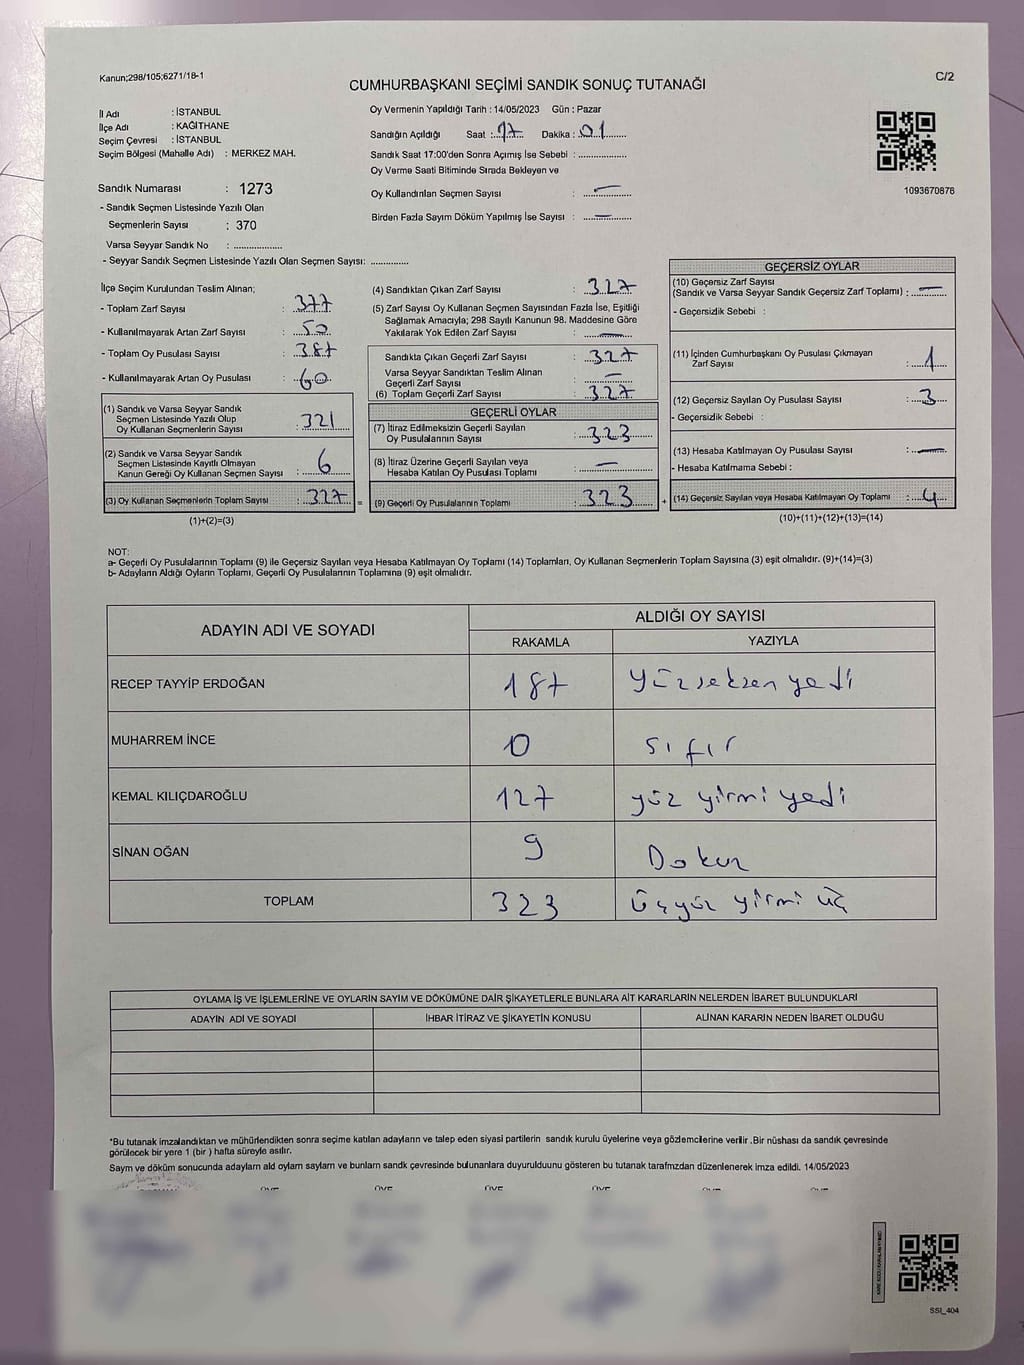 Kanun;298/105;6271/18-1
C/2
CUMHURBAŞKANI SEÇİMİ SANDIK SONUÇ TUTANAĞI
İl Adı : İSTANBUL
İlçe Adı : KAĞITHANE
Seçim Çevresi : İSTANBUL
Seçim Bölgesi (Mahalle Adı) : MERKEZ MAH.
Sandık Numarası : 1273
- Sandık Seçmen Listesinde Yazılı Olan
Seçmenlerin Sayısı : 370
Varsa Seyyar Sandık No : ..................
- Seyyar Sandık Seçmen Listesinde Yazılı Olan Seçmen Sayısı: ..............
Oy Vermenin Yapıldığı Tarih : 14/05/2023 Gün : Pazar
Sandığın Açıldığı Saat : 17 Dakika : 01
Sandık Saat 17:00'den Sonra Açımış İse Sebebi : ..................
Oy Verme Saati Bitiminde Sırada Bekleyen ve
Oy Kullandırılan Seçmen Sayısı : —
Birden Fazla Sayım Döküm Yapılmış İse Sayısı : —
1093670876
İlçe Seçim Kurulundan Teslim Alınan;
- Toplam Zarf Sayısı : 377
- Kullanılmayarak Artan Zarf Sayısı : 50
- Toplam Oy Pusulası Sayısı : 387
- Kullanılmayarak Artan Oy Pusulası : 60
(1) Sandık ve Varsa Seyyar Sandık
Seçmen Listesinde Yazılı Olup
Oy Kullanan Seçmenlerin Sayısı : 321
(2) Sandık ve Varsa Seyyar Sandık
Seçmen Listesinde Kayıtlı Olmayan
Kanun Gereği Oy Kullanan Seçmen Sayısı : 6
(3) Oy Kullanan Seçmenlerin Toplam Sayısı : 327
(1)+(2)=(3)
(4) Sandıktan Çıkan Zarf Sayısı : 327
(5) Zarf Sayısı Oy Kullanan Seçmen Sayısından Fazla İse, Eşitliği
Sağlamak Amacıyla; 298 Sayılı Kanunun 98. Maddesine Göre
Yakılarak Yok Edilen Zarf Sayısı : —
Sandıkta Çıkan Geçerli Zarf Sayısı : 327
Varsa Seyyar Sandıktan Teslim Alınan
Geçerli Zarf Sayısı : —
(6) Toplam Geçerli Zarf Sayısı : 327
GEÇERLİ OYLAR
(7) İtiraz Edilmeksizin Geçerli Sayılan
Oy Pusulalarının Sayısı : 323
(8) İtiraz Üzerine Geçerli Sayılan veya
Hesaba Katılan Oy Pusulası Toplamı : —
= (9) Geçerli Oy Pusulalarının Toplamı : 323 +
GEÇERSİZ OYLAR
(10) Geçersiz Zarf Sayısı
(Sandık ve Varsa Seyyar Sandık Geçersiz Zarf Toplamı) : —
- Geçersizlik Sebebi :
(11) İçinden Cumhurbaşkanı Oy Pusulası Çıkmayan
Zarf Sayısı : 1
(12) Geçersiz Sayılan Oy Pusulası Sayısı : 3
- Geçersizlik Sebebi :
(13) Hesaba Katılmayan Oy Pusulası Sayısı : —
- Hesaba Katılmama Sebebi :
(14) Geçersiz Sayılan veya Hesaba Katılmayan Oy Toplamı : 4
(10)+(11)+(12)+(13)=(14)
NOT:
a- Geçerli Oy Pusulalarının Toplamı (9) ile Geçersiz Sayılan veya Hesaba Katılmayan Oy Toplamı (14) Toplamları, Oy Kullanan Seçmenlerin Toplam Sayısına (3) eşit olmalıdır. (9)+(14)=(3)
b- Adayların Aldığı Oyların Toplamı, Geçerli Oy Pusulalarının Toplamına (9) eşit olmalıdır.
ADAYIN ADI VE SOYADI
ALDIĞI OY SAYISI
RAKAMLA YAZIYLA
RECEP TAYYİP ERDOĞAN 187 yüzseksen yedi
MUHARREM İNCE 0 sıfır
KEMAL KILIÇDAROĞLU 127 yüz yirmi yedi
SİNAN OĞAN 9 Dokuz
TOPLAM 323 Üçyüz yirmi üç
OYLAMA İŞ VE İŞLEMLERİNE VE OYLARIN SAYIM VE DÖKÜMÜNE DAİR ŞİKAYETLERLE BUNLARA AİT KARARLARIN NELERDEN İBARET BULUNDUKLARI
ADAYIN ADI VE SOYADI İHBAR İTİRAZ VE ŞİKAYETİN KONUSU ALINAN KARARIN NEDEN İBARET OLDUĞU
*Bu tutanak imzalandıktan ve mühürlendikten sonra seçime katılan adayların ve talep eden siyasi partilerin sandık kurulu üyelerine veya gözlemcilerine verilir .Bir nüshası da sandık çevresinde
görülecek bir yere 1 (bir ) hafta süreyle asılır.
Sayım ve döküm sonucunda adaylarn ald oylarn saylarn ve bunlarn sandk çevresinde bulunanlara duyurulduunu gösteren bu tutanak tarafmzdan düzenlenerek imza edildi. 14/05/2023
ÜYE ÜYE ÜYE ÜYE ÜYE ÜYE
SSI_404